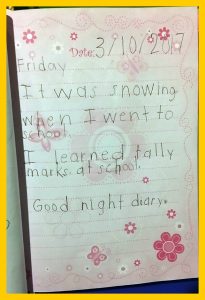 Date: 3/10/2017
Friday
It was snowing
when I went to
school.
I learned tally
marks at school.
Good night diary.